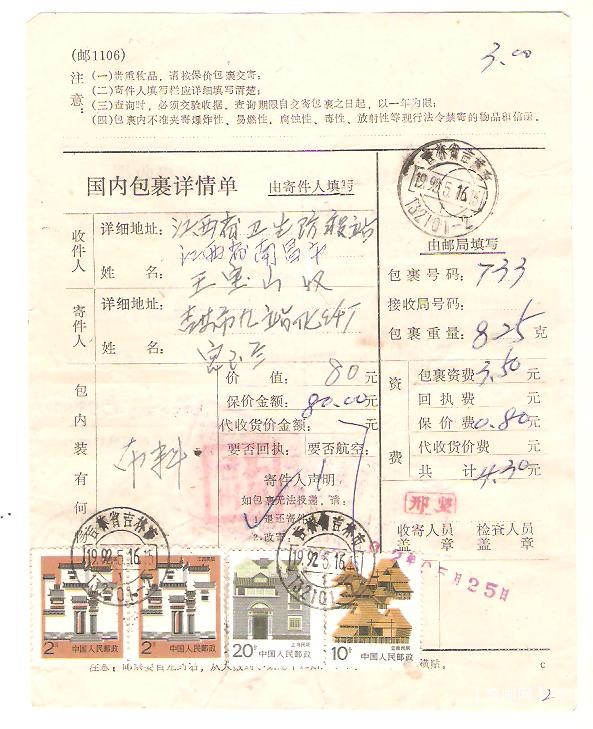 (邮1106)
3.00
注意:
(一)贵重物品，请按保价包裹交寄;
(二)寄件人填写栏应详细填写清楚;
(三)查询时，必须交验收据，查询期限自交寄包裹之日起，以一年为限;
(四)包裹内不准夹寄爆炸性、易燃性、腐蚀性、毒性、放射性等现行法令禁寄的物品和信函。
国内包裹详情单 由寄件人填写
吉林省吉林市
1992.5.16.15
132101-2
由邮局填写
收件人
详细地址: 江西省卫生防疫站
江西省南昌市
姓名: 王 山 收
寄件人
详细地址: 吉林市九站化纤厂
姓名:
包裹号码: 733
接收局号码:
包裹重量: 825 克
价值: 80 元
保价金额: 80.00 元
代收货价金额: 元
要否回执: 要否航空:
包内装有何
布料
寄件人声明
如包裹无法投递，请:
1.退还寄件
2.改寄
资费
包裹资费 3.50 元
回执费 元
保价费 0.80 元
代收货价费 元
共计 4.30 元
邢
收寄人员盖章
检查人员盖章
吉林省吉林市
1992.5.16.15
132101-2
吉林省吉林市
1992.5.16.15
132101-2
月25日
2分 中国人民邮政
2分 中国人民邮政
上海民居
20分 中国人民邮政
云南民居
10分 中国人民邮政
c
2